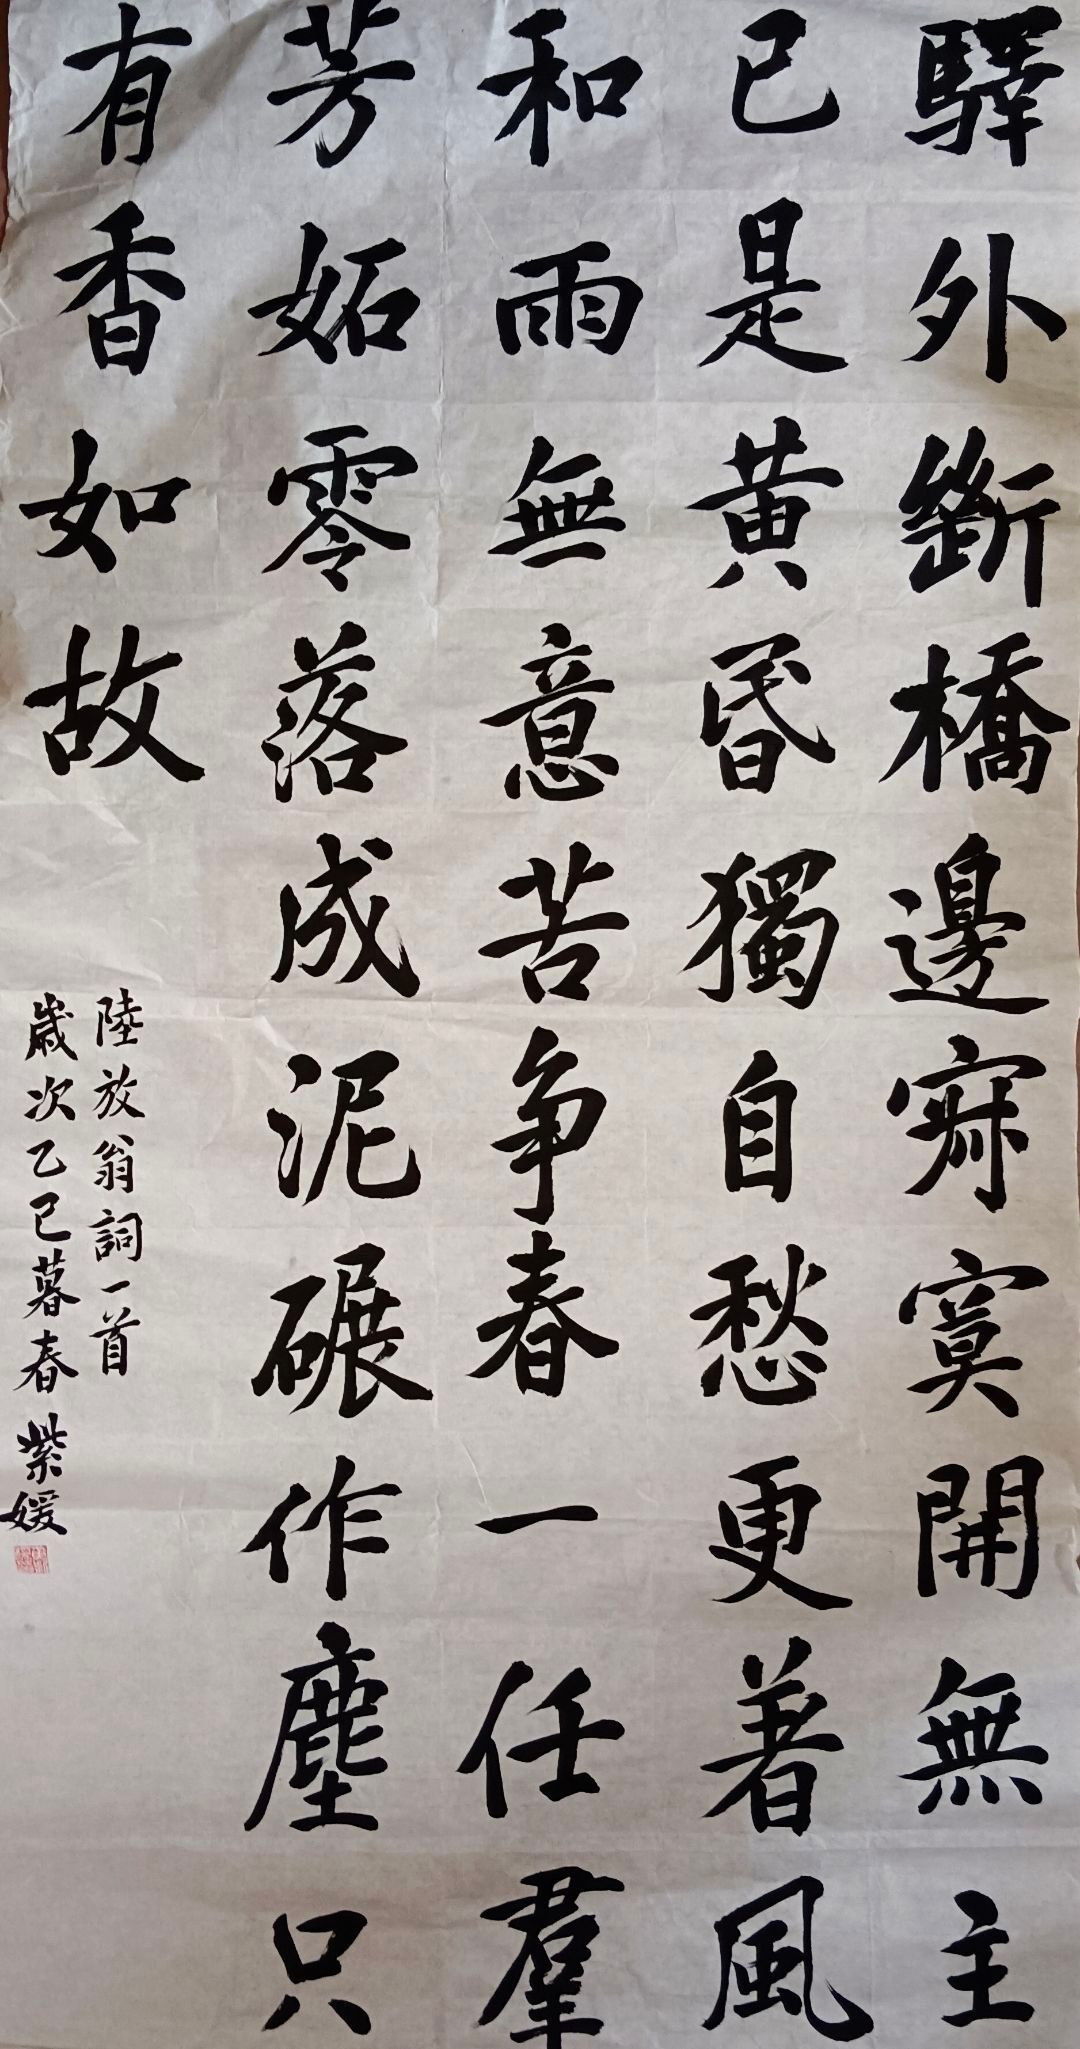 驛外斷橋邊寂寞開無主
已是黃昏獨自愁更著風
和雨無意苦爭春一任羣
芳妬零落成泥碾作塵只
有香如故
陸放翁詞一首
歲次乙巳暮春 紫媛